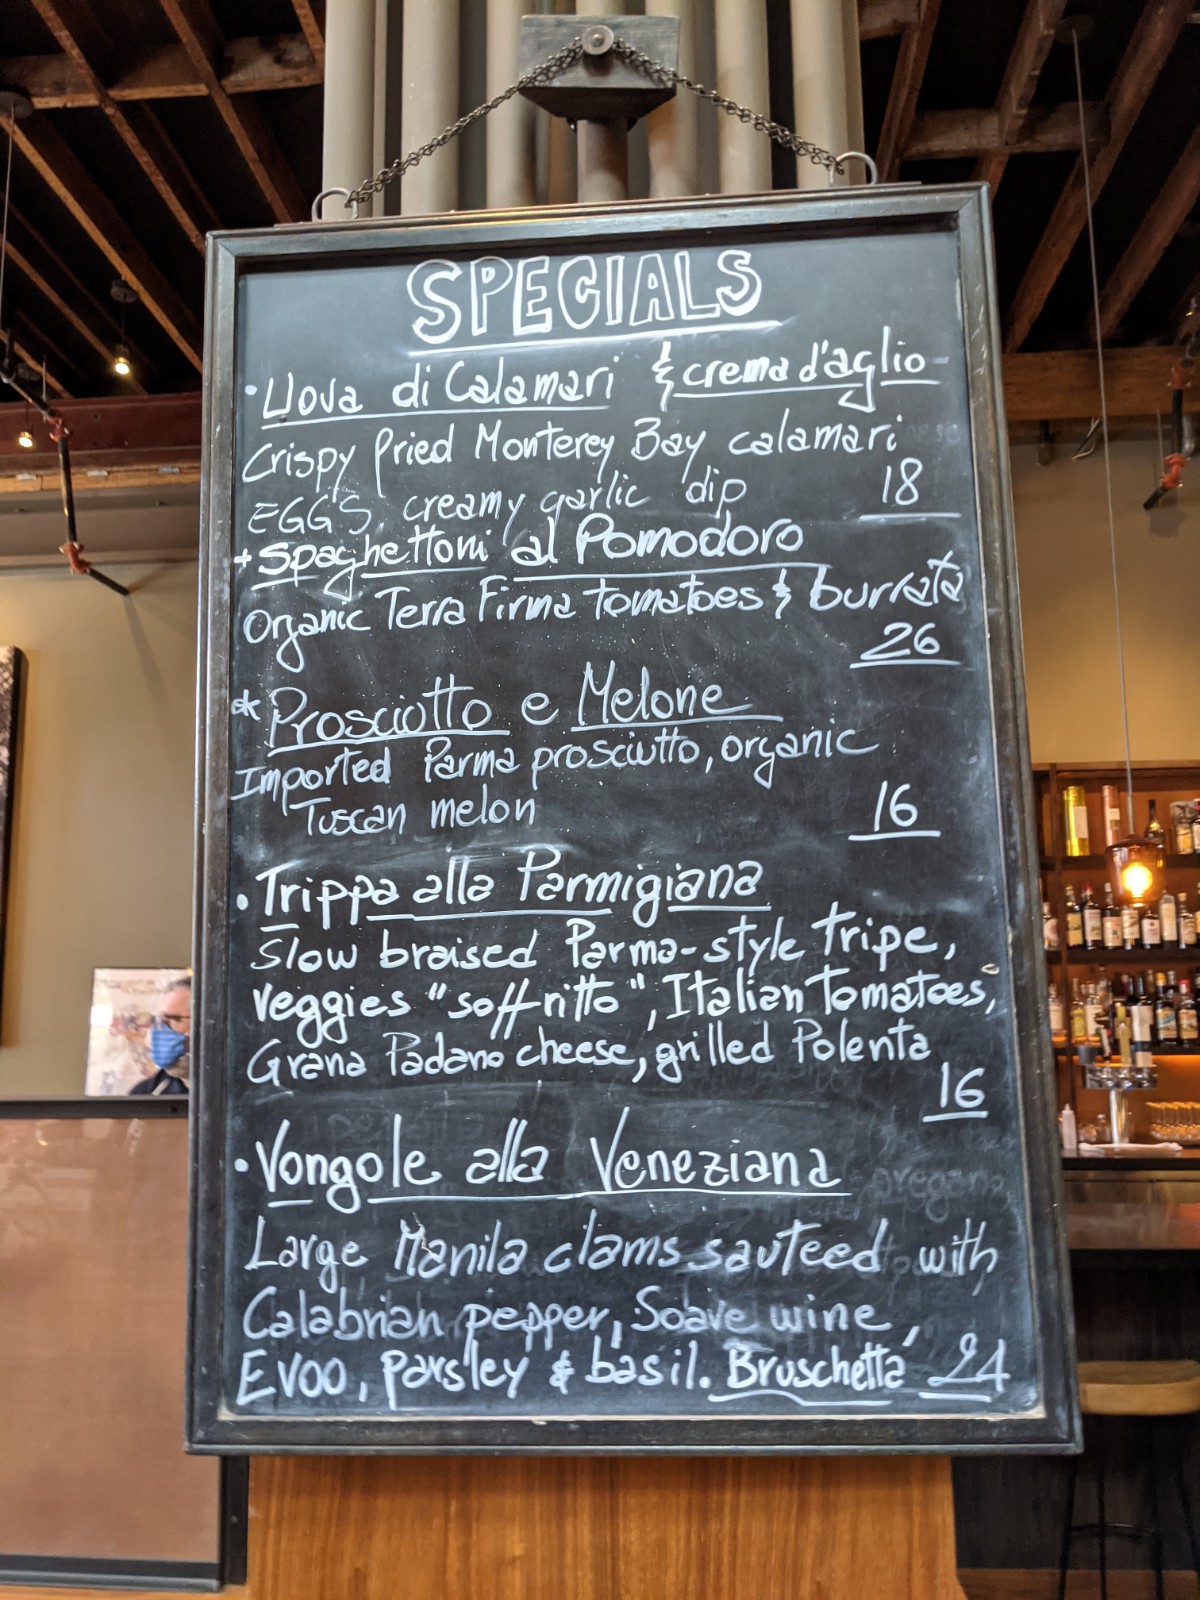 SPECIALS
• Uova di Calamari & crema d'aglio
Crispy fried Monterey Bay calamari
EGGS, creamy garlic dip 18
+ Spaghettoni al Pomodoro
Organic Terra Firma tomatoes & burrata
26
* Prosciotto e Melone
Imported Parma prosciutto, organic
Tuscan melon 16
• Trippa alla Parmigiana
Slow braised Parma-style tripe,
veggies "soffritto", Italian tomatoes,
Grana Padano cheese, grilled Polenta
16
• Vongole alla Veneziana
Large Manila clams sauteed with
Calabrian pepper, Soave wine,
EVOO, parsley & basil. Bruschetta 24